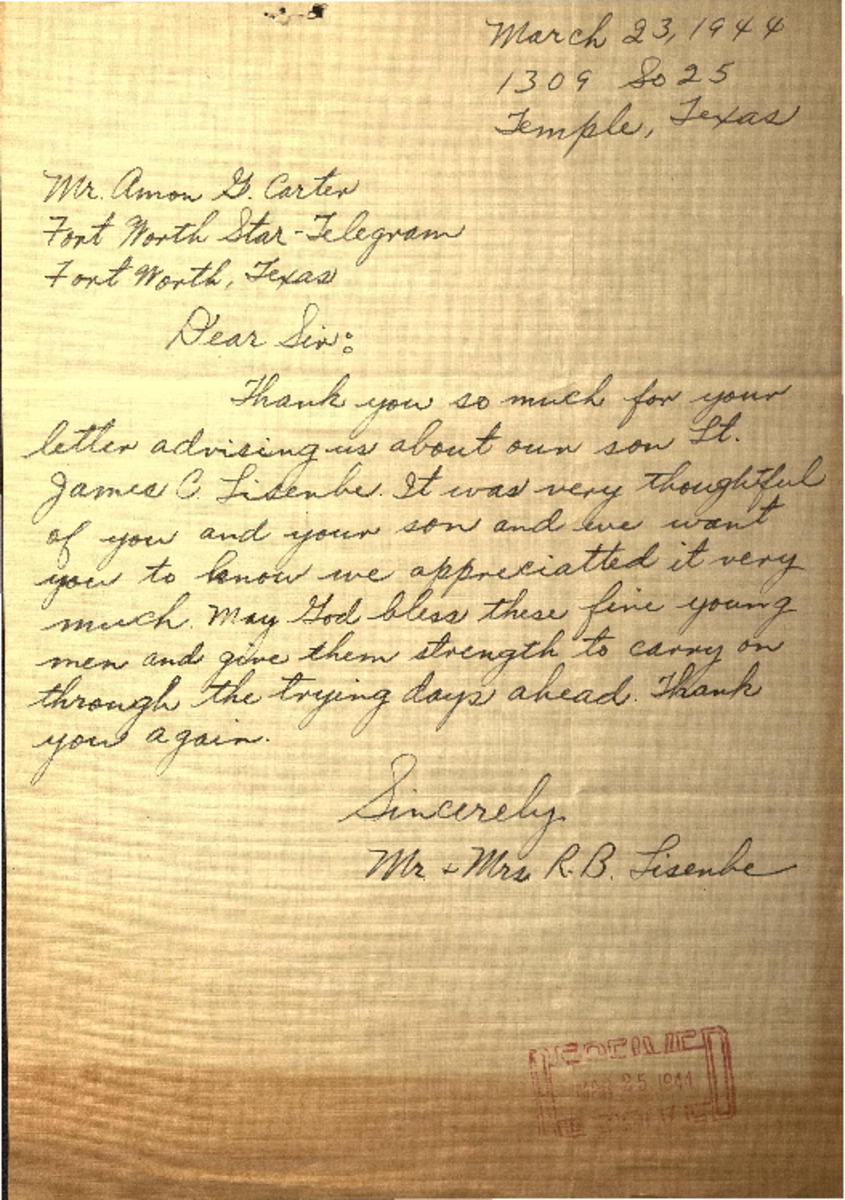 March 23, 1944
1309 So 25
Temple, Texas
Mr. Amon G. Carter
Fort Worth Star-Telegram
Fort Worth, Texas
Dear Sir:
Thank you so much for your
letter advising us about our son Lt.
James C. Lisenbe. It was very thoughtful
of you and your son and we want
you to know we appreciatted it very
much. May God bless these fine young
men and give them strength to carry on
through the trying days ahead. Thank
you again.
Sincerely,
Mr. & Mrs. R.B. Lisenbe
RECEIVED
MAR 25 1944